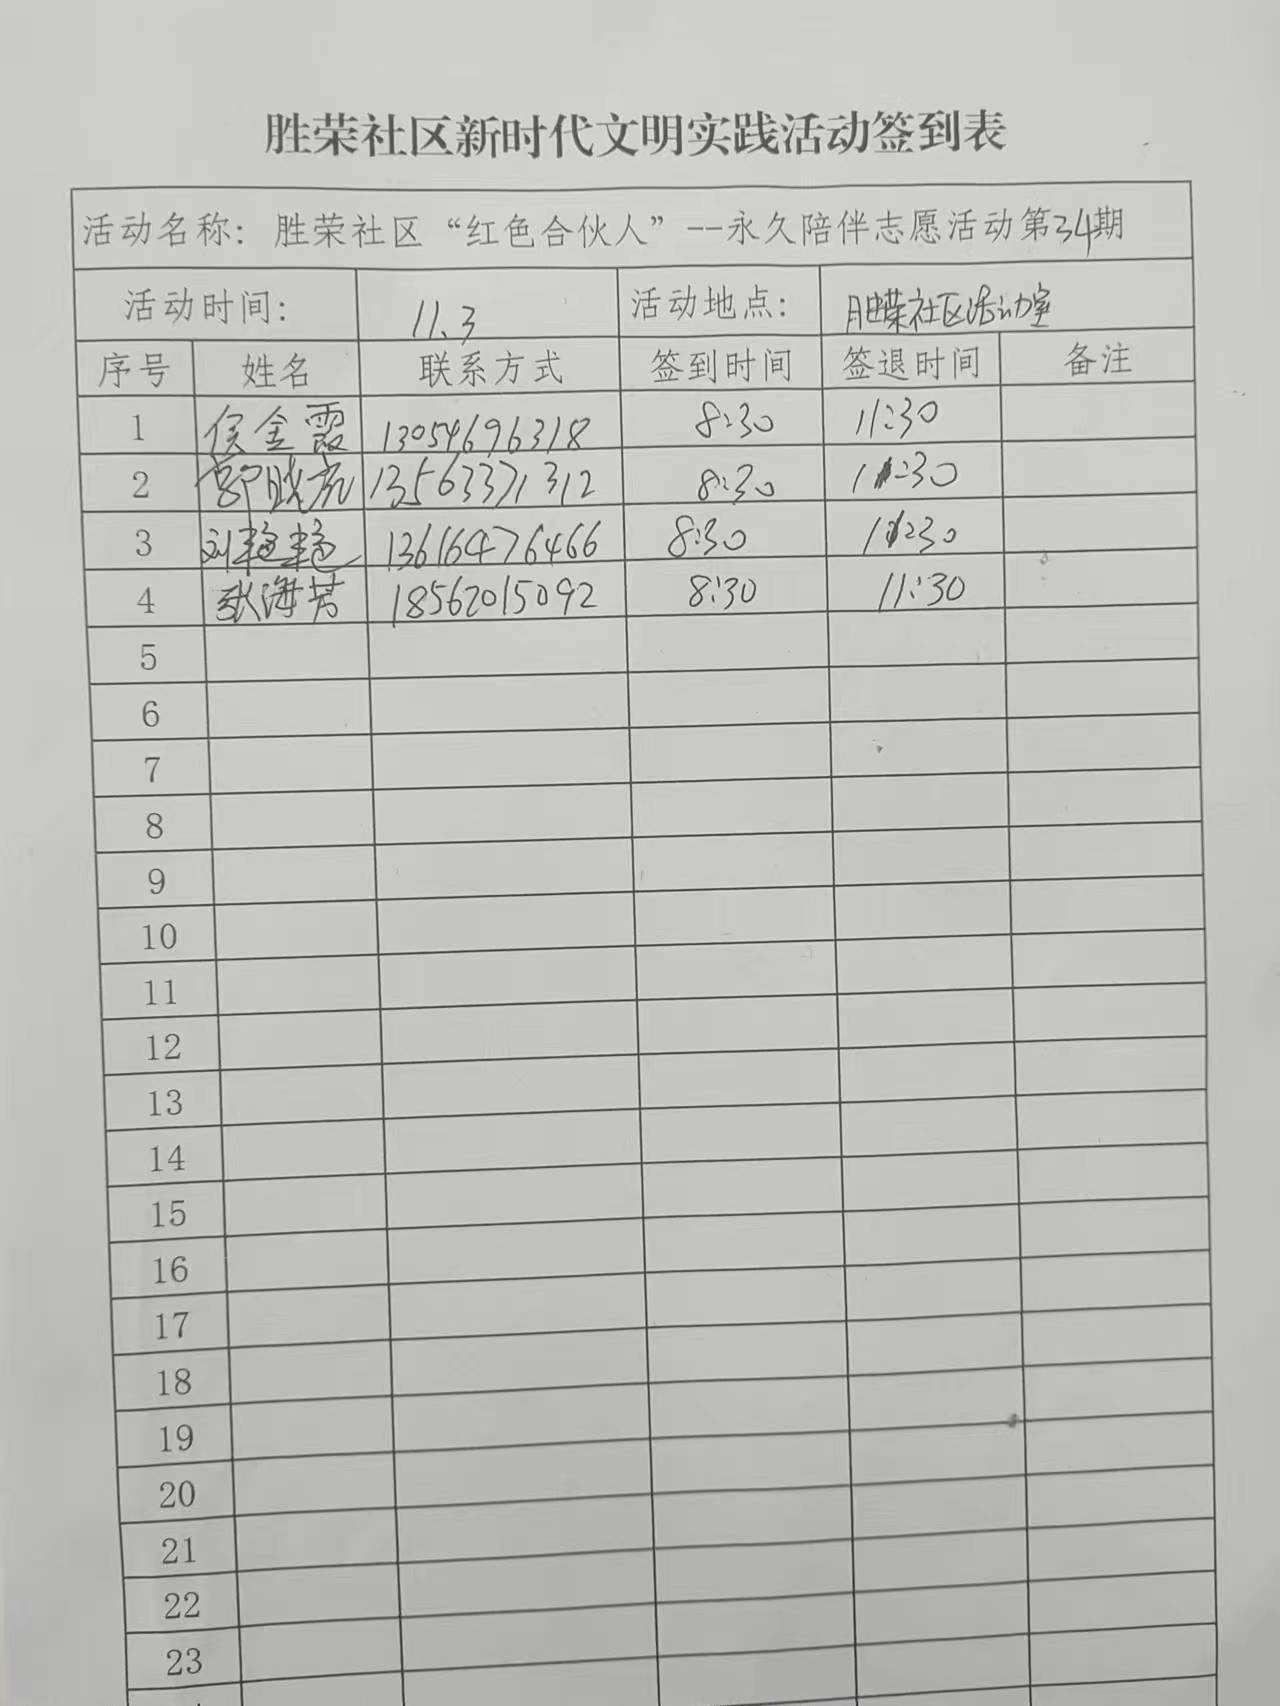 胜荣社区新时代文明实践活动签到表
活动名称：胜荣社区“红色合伙人”--永久陪伴志愿活动第34期
活动时间： 11.3 活动地点： 胜荣社区活动室
序号 姓名 联系方式 签到时间 签退时间 备注
1 侯金霞 13054696318 8:30 11:30
2 郭晓 13563371312 8:30 11:30
3 刘艳艳 13616476466 8:30 11:30
4 张海芳 18562015092 8:30 11:30
5
6
7
8
9
10
11
12
13
14
15
16
17
18
19
20
21
22
23